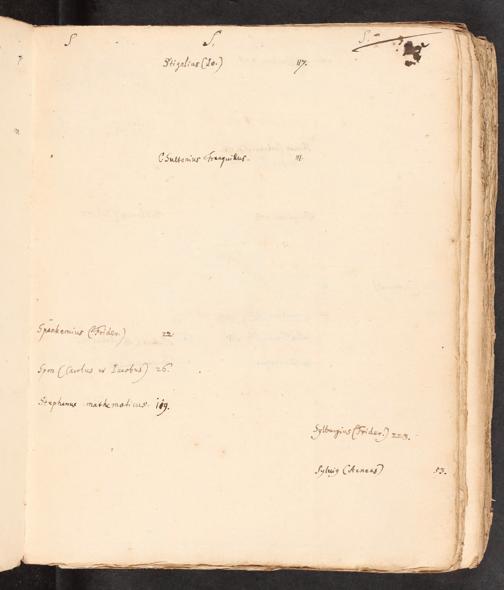 S S. S.
Stigelius (Io.) 117.
C Suetonius Tranquillus. 11.
Spanhemius (Frider.) 22.
Spon (Carolus et Iacobus) 26.
Stephanus mathematicus. 119.
Sylburgius (Frider.) 223.
Sylvius (Aeneas) 53.